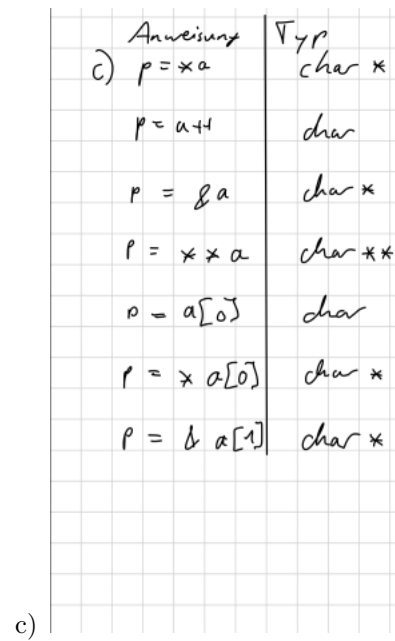 Anweisung Typ
c) p = *a char *
p = a++ char
p = &a char *
p = **a char **
p = a[0] char
p = *a[0] char *
p = &a[1] char *
c)